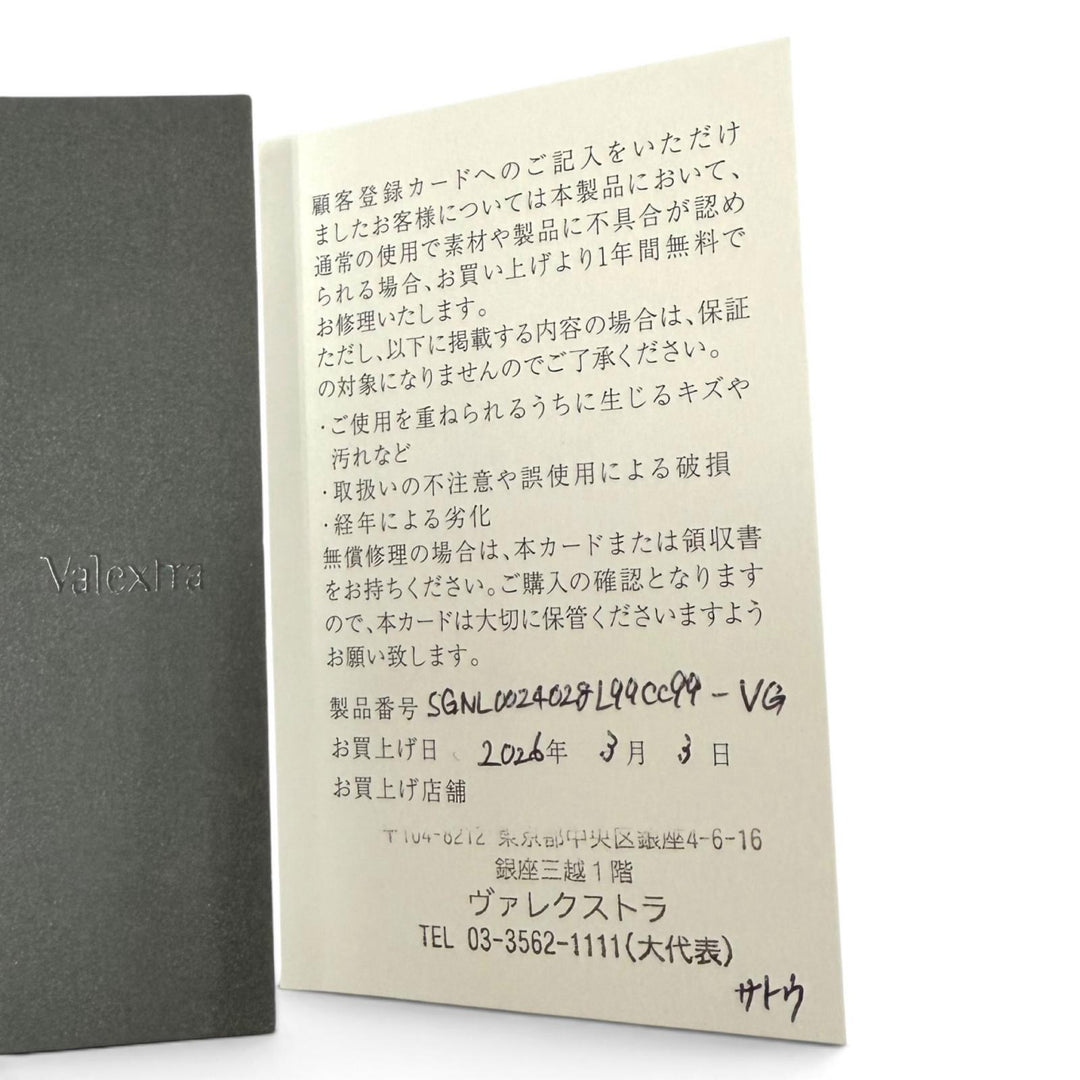 Valextra
顧客登録カードへのご記入をいただけ
ましたお客様については本製品において、
通常の使用で素材や製品に不具合が認め
られる場合、お買い上げより1年間無料で
お修理いたします。
ただし、以下に掲載する内容の場合は、保証
の対象になりませんのでご了承ください。
・ご使用を重ねられるうちに生じるキズや
汚れなど
・取扱いの不注意や誤使用による破損
・経年による劣化
無償修理の場合は、本カードまたは領収書
をお持ちください。ご購入の確認となります
ので、本カードは大切に保管くださいますよう
お願い致します。
製品番号 SGNL0024028L99CC99-VG
お買上げ日 2026年 3月 3日
お買上げ店舗
〒104-8212 東京都中央区銀座4-6-16
銀座三越1階
ヴァレクストラ
TEL 03-3562-1111(大代表)
サトウ